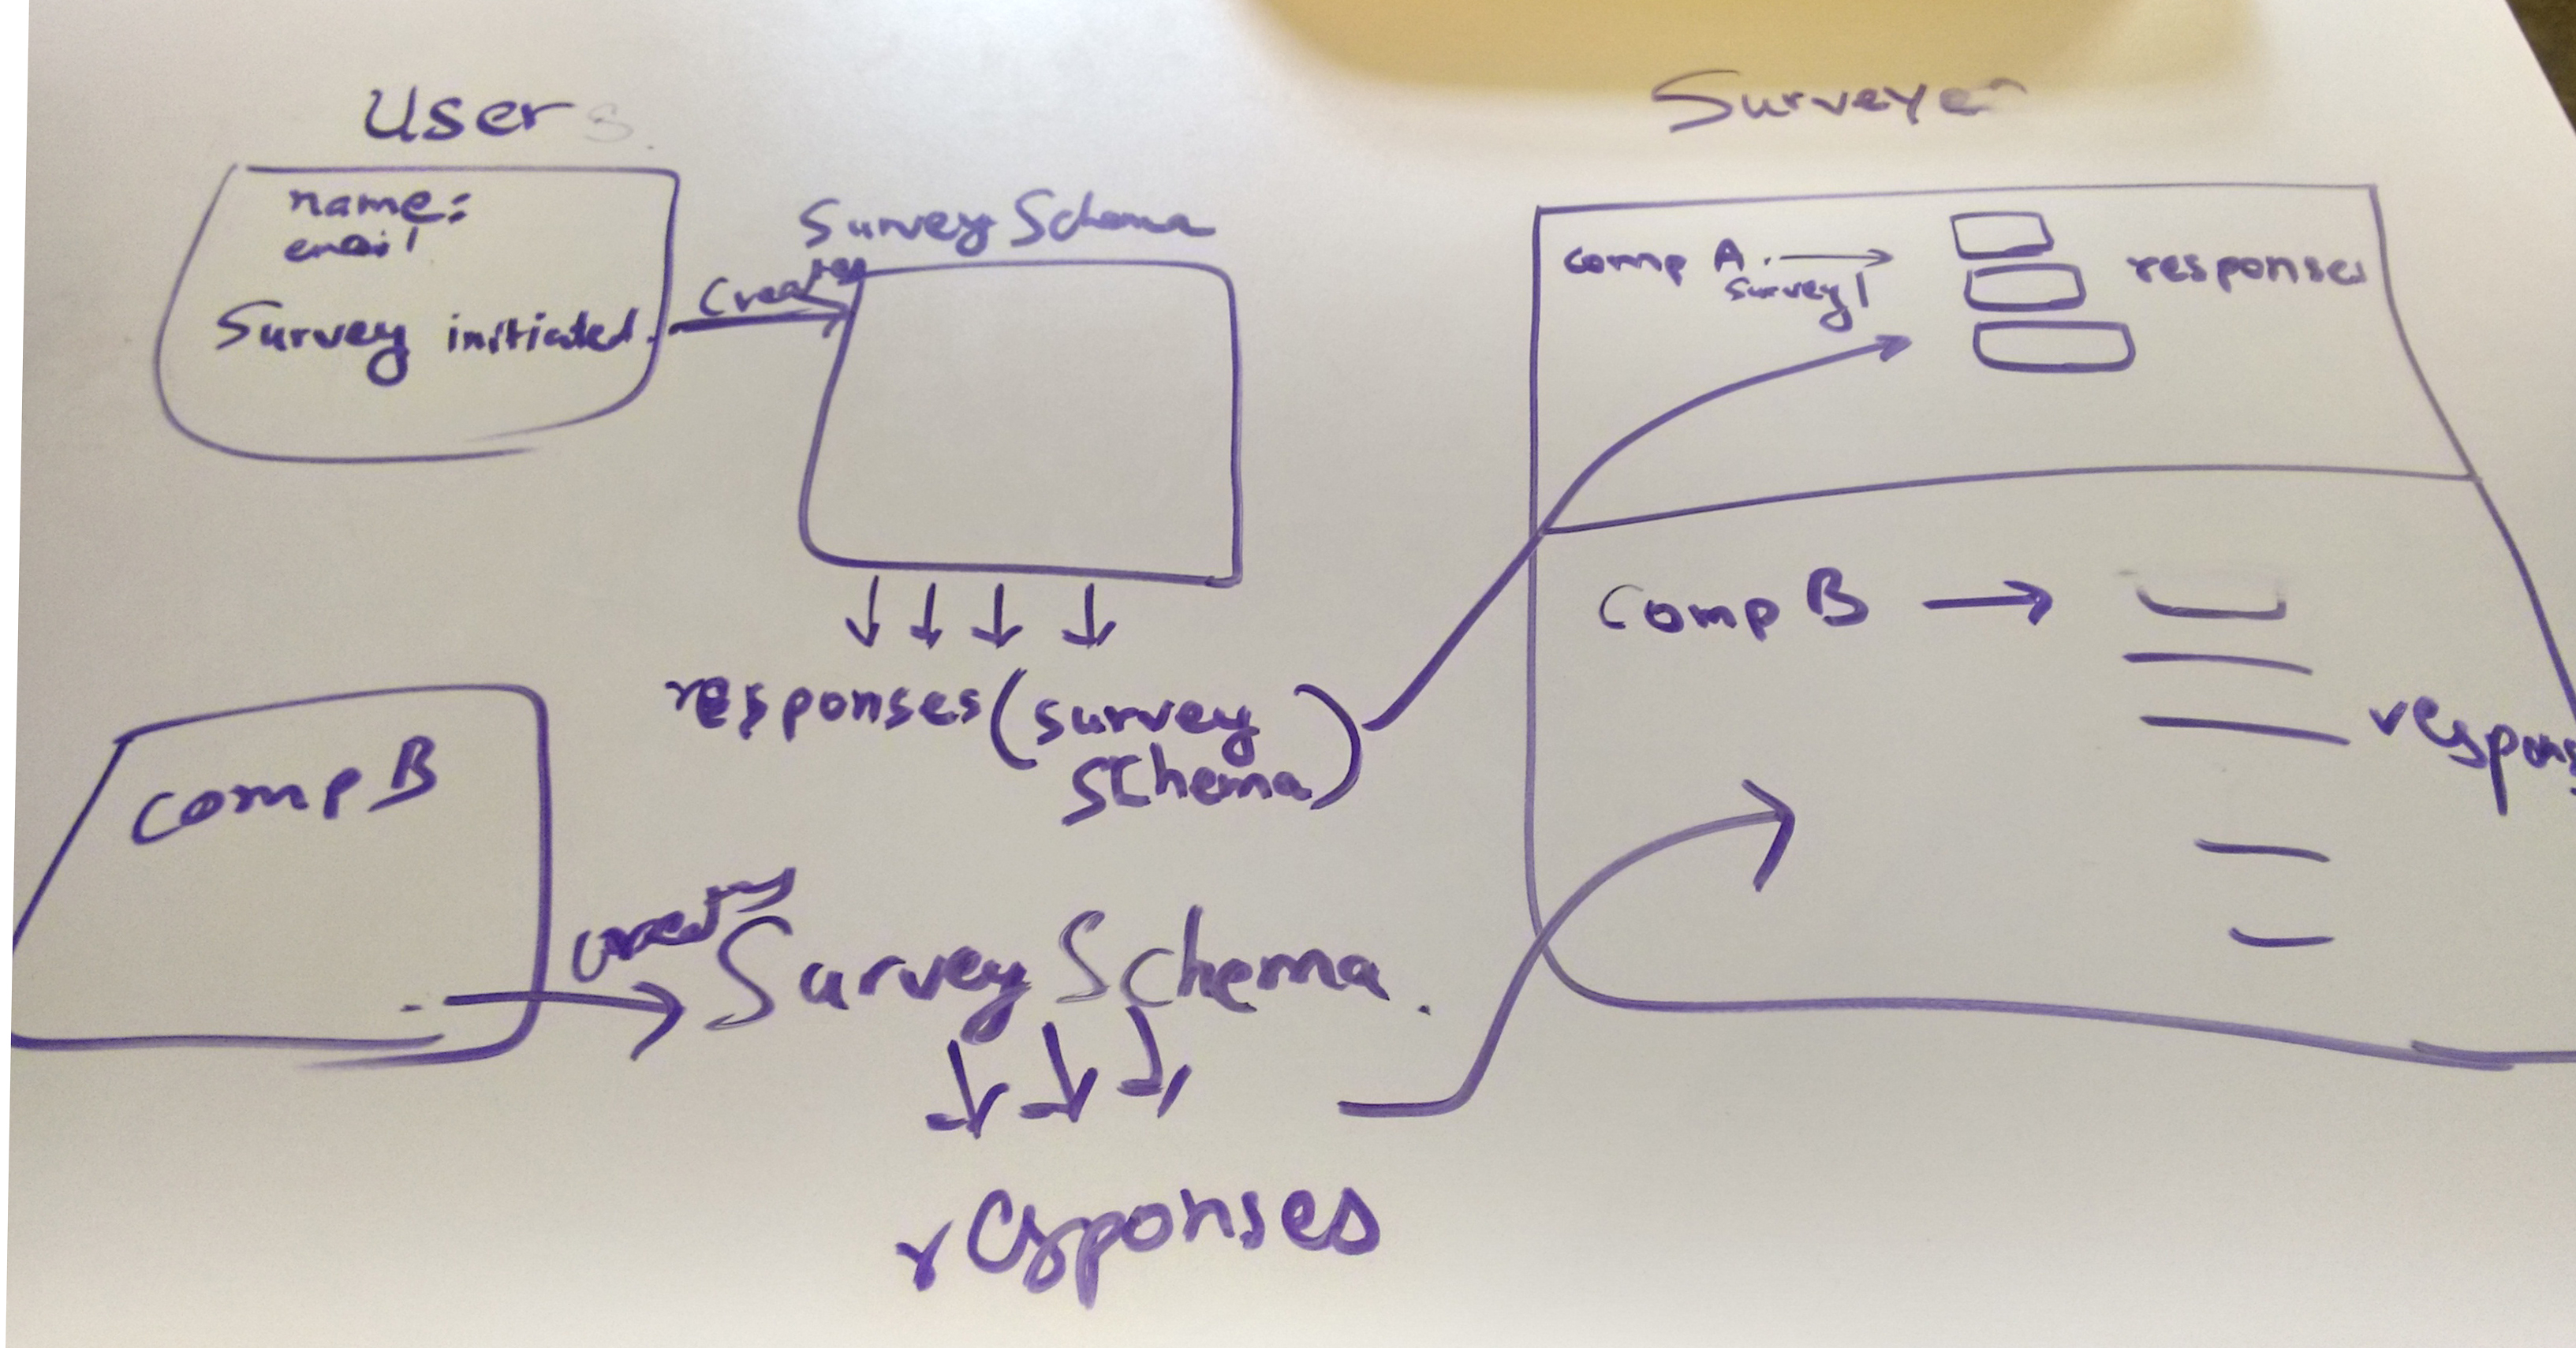 Users.
name:
email
Survey initiated.
Creates
Survey Schema
responses (survey
schema)
comp B
creates
Survey Schema.
responses
Surveyer
comp A.
Survey 1
responses
Comp B
respons